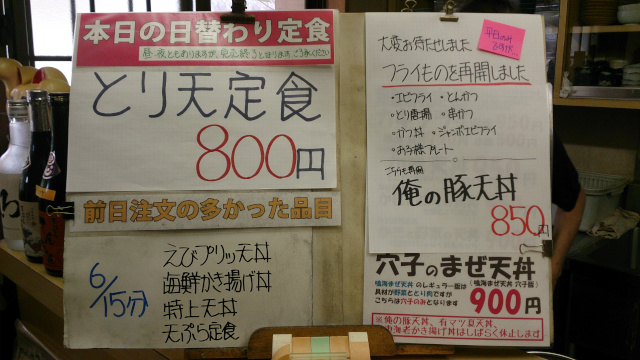 本日の日替わり定食
とり天定食
800円
前日注文の多かった品目
6/15分
えびブリッ天丼
海鮮かき揚げ丼
特上天丼
天ぷら定食
大変お待たせしました
フライものを再開しました
・エビフライ ・とんかつ
・とり唐揚 ・串かつ
・かつ丼 ・ジャンボエビフライ
・お子様プレート
こちらも再開
俺の豚天丼
850円
穴子のまぜ天丼
鳴海まぜ天丼 のレギュラー版は
具材が野菜ととり肉ですが
こちらは穴子のみとなります
(鳴海まぜ天丼 穴子版)
900円
※俺の豚天丼、有マツ夏天丼、
海老かき揚げ丼はしばらく休止します